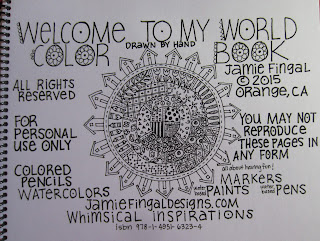 WELCOME TO MY WORLD
COLOR BOOK
DRAWN BY HAND
Jamie Fingal
© 2015
Orange, CA
ALL RIGHTS
RESERVED
FOR
PERSONAL
USE ONLY
YOU MAY NOT
REPRODUCE
THESE PAGES IN
ANY FORM
all about having fun!
COLORED
PENCILS
WATERCOLORS
MARKERS
water based PAINTS water based PENS
JAMIEFINGALDESIGNS.COM
WHIMSICAL INSPIRATIONS
Isbn 978-1-4951-6323-4